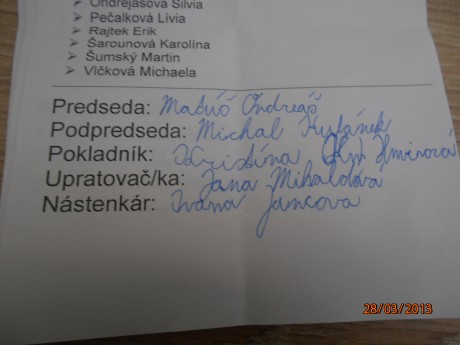 ➤ Ondrejašová Silvia
➤ Pečalková Lívia
➤ Rajtek Erik
➤ Šarounová Karolína
➤ Šumský Martin
➤ Vlčková Michaela
Predseda: Matúš Ondreáš
Podpredseda: Michal
Pokladník: Kristína
Upratovač/ka: Jana Mihalová
Nástenkár: Ivana Jancova
28/03/2013